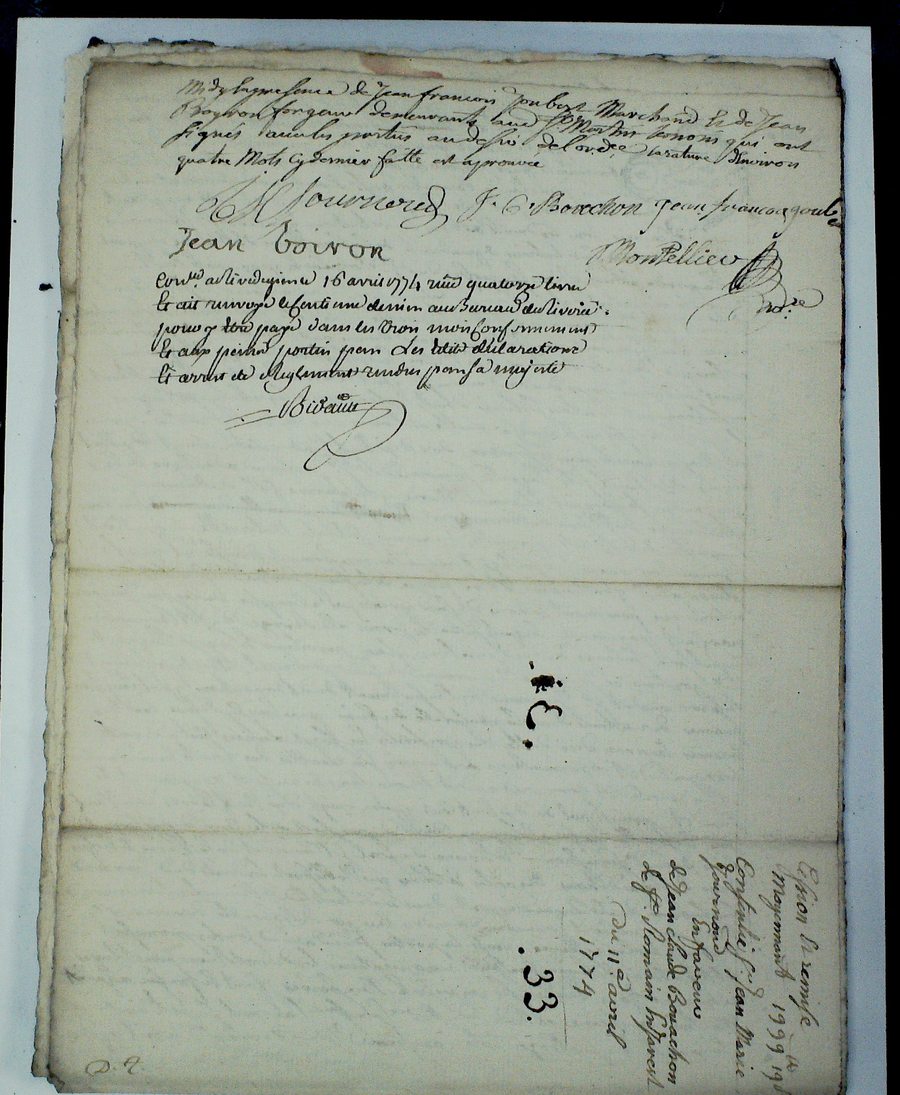 midy En presence de Jean francois Joubert Marchand Et de Jean
Boyron forgeur demeurants aud St Martin temoins qui ont
signés avec les parties au desir de lordce, la rature denviron
quatre Mots cy dernier faitte est aprouvée
Journoud J. C. Bouachon Jean francoi Joube
Jean boiron Montellier
Conlé a Rivedegier le 16 avril 1774 reçu quatorze livre
Et ait renvoyé le Centieme denier au Bureau de
pour y être payé dans les trois mois Conformement
Et aux peines portées par Les Edits declarations
Et arrets de Reglement rendus par sa majesté
Bivaux
.E.
Cession Et remise
Moyennant 1999
Consentie Sr Jean Marie
Journoud
En faveur
de Jean Claude Bouachon
de St Romain En Jarest
Du 11e avril
1774
.33.